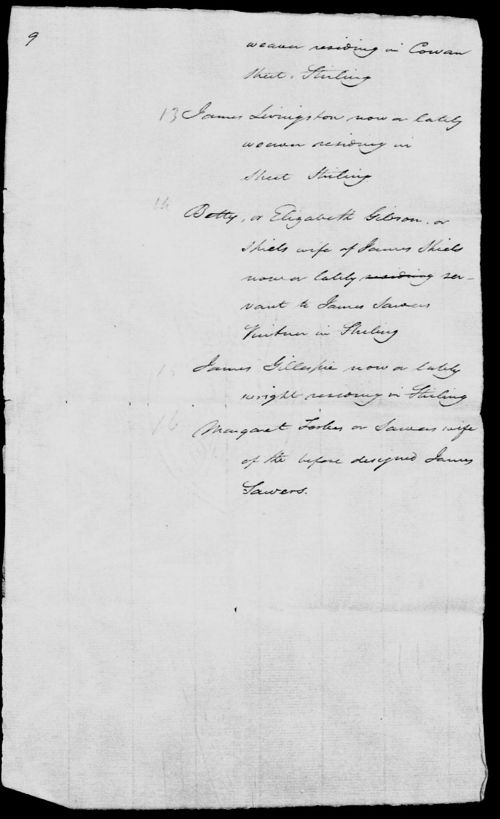 9
weaver residing in Cowan
Street, Stirling
13 James Livingston now or lately
weaver residing in
Street Stirling
14 Betty, or Elizabeth Gibson, or
Shiels wife of James Shiels
now or lately residing ser-
vant to James Sawers
Vintner in Stirling
15 James Gillespie now or lately
wright residing in Stirling
16 Margaret Forbes or Sawers wife
of the before designed James
Sawers.